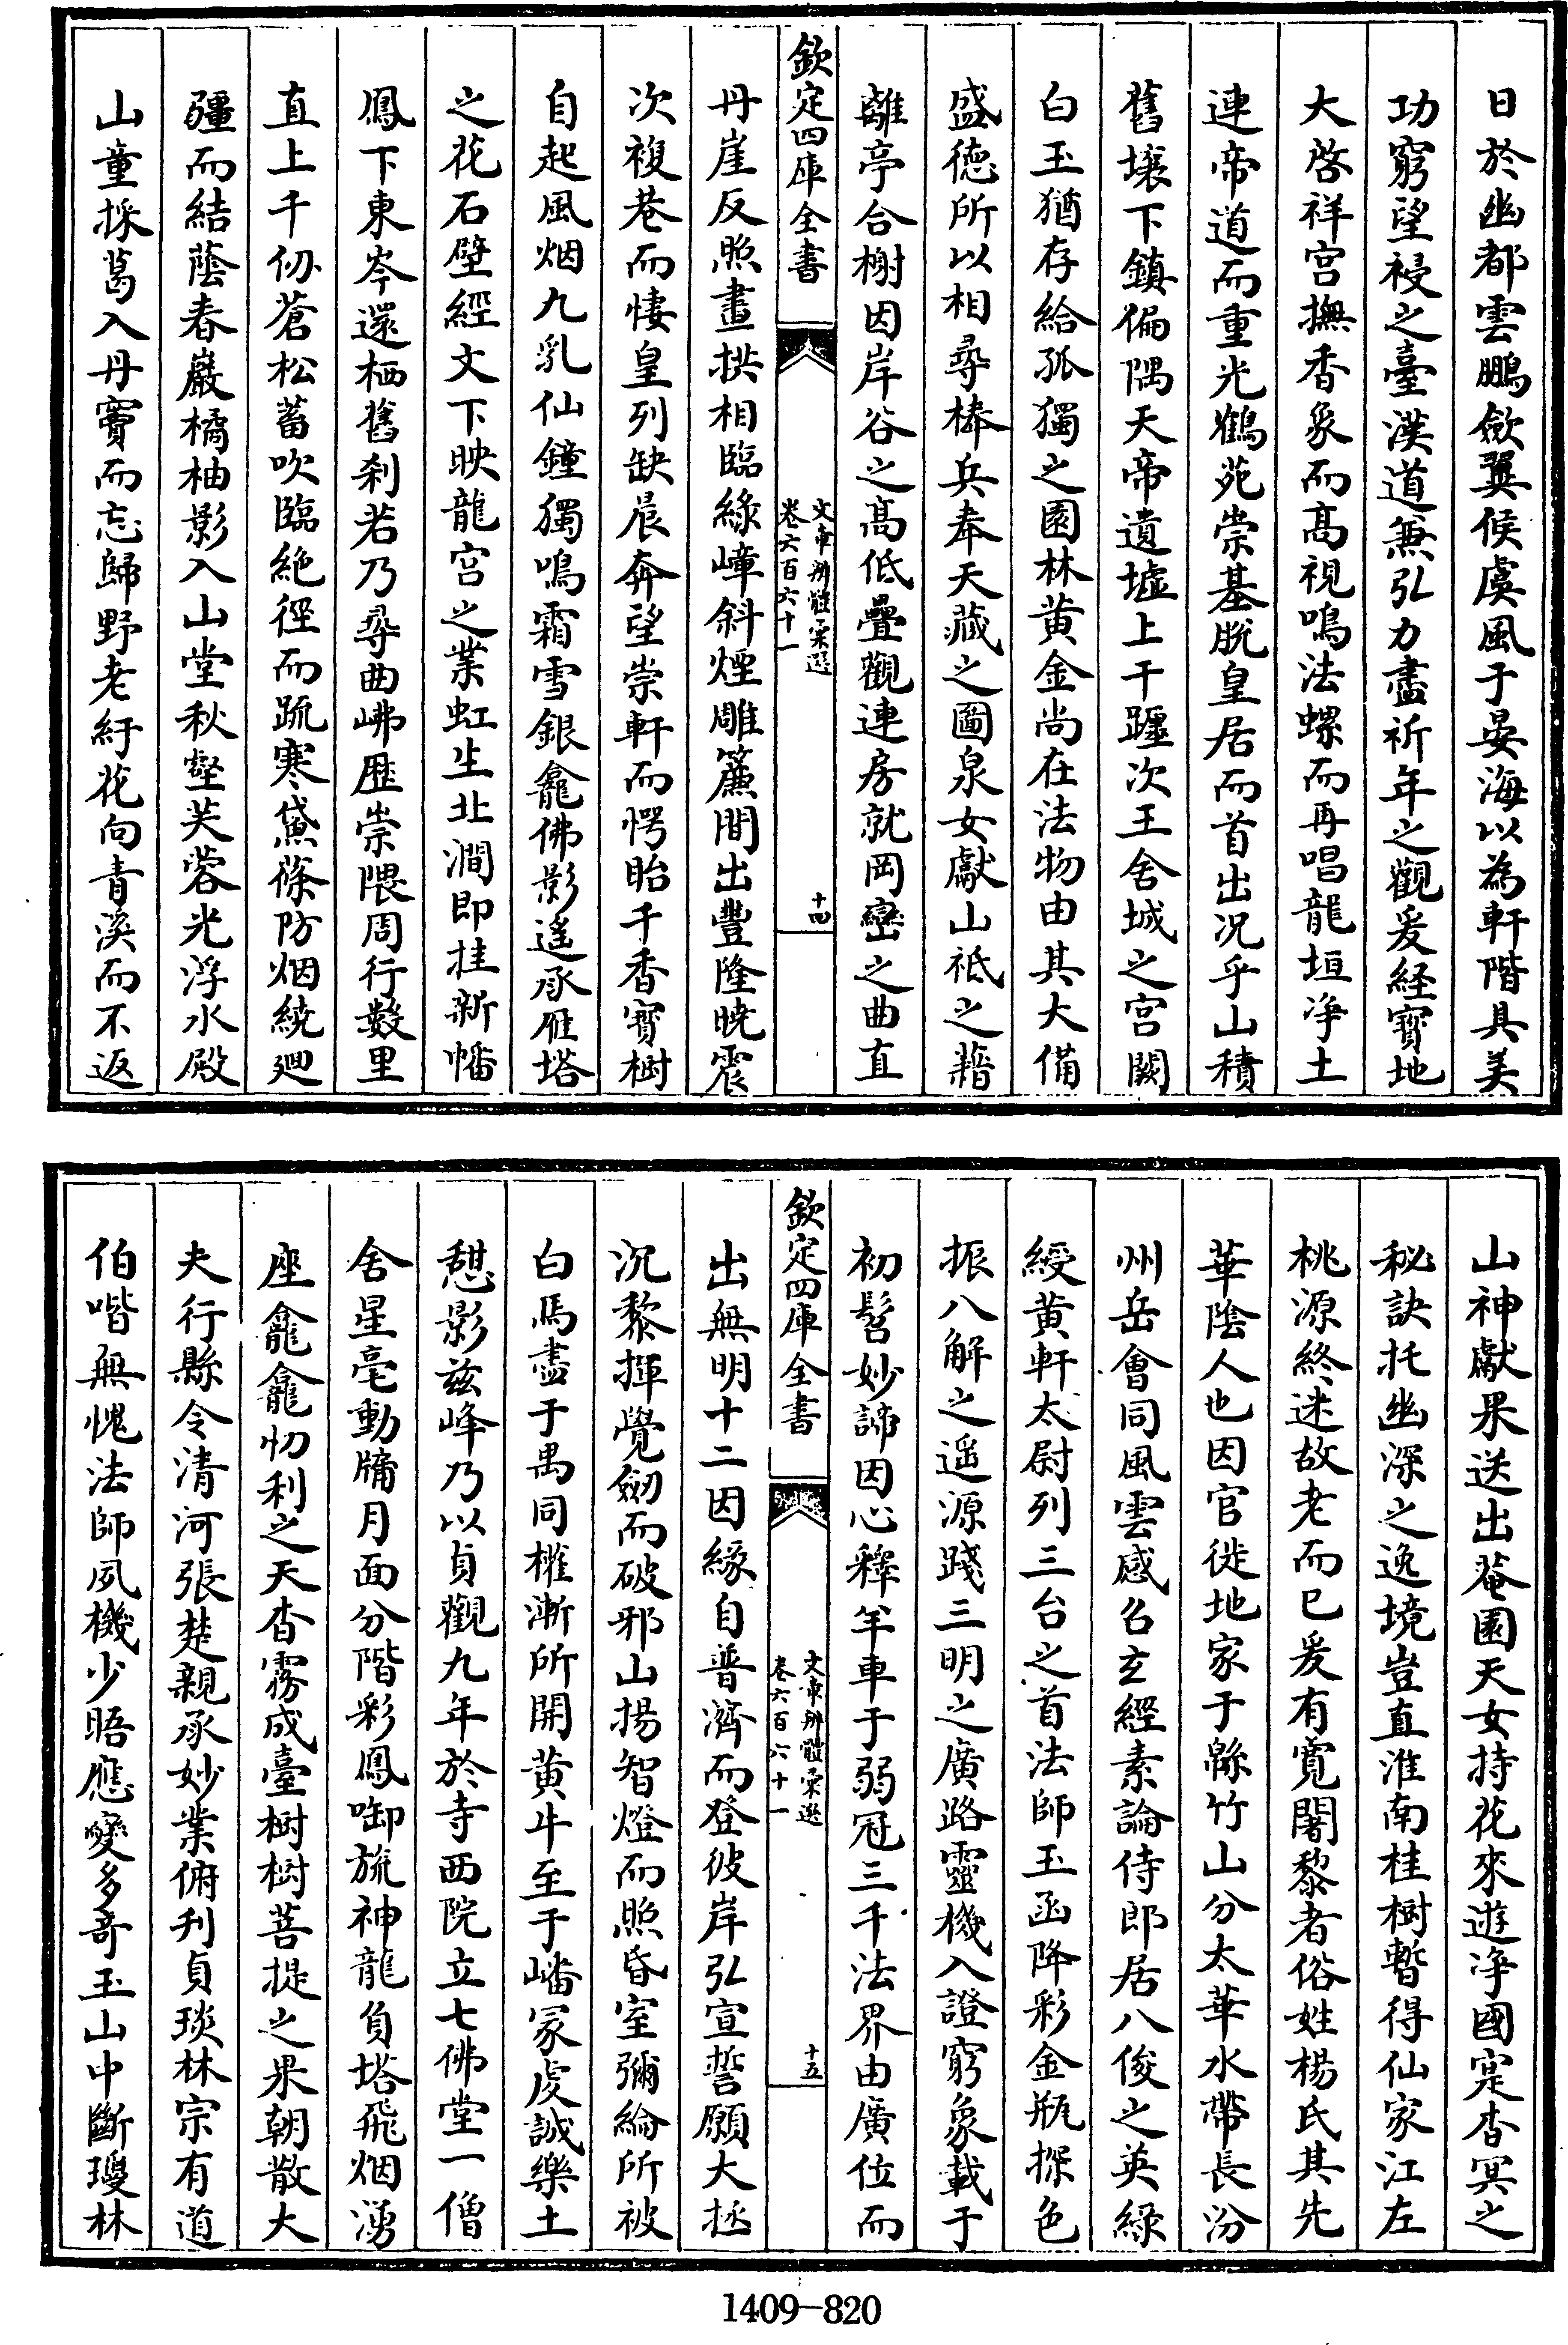 日於幽都雲鵬斂翼候虞風于晏海以為軒階具美
功窮望祲之臺漢道無弘力盡祈年之觀爰経寳地
大啓祥宫撫香象而髙視鳴法螺而再唱龍垣浄土
連帝道而重光鶴苑崇基脱皇居而首出况乎山積
舊壌下鎮偏隅天帝遺墟上干躔次王舍城之宫闕
白玉猶存給孤獨之園林黄金尚在法物由其大備
盛德所以相尋棒兵奉天藏之圖泉女獻山祗之藉
離亭合榭因岸谷之髙低疊觀連房就岡巒之曲直
欽定四庫全書
文章辨體彚選
卷六百六十一
十四
丹崖反照畫拱相臨緑嶂斜煙雕簾間出豐隆曉震
次複巷而悽皇列缺晨奔望崇軒而愕眙千香寳樹
自起風烟九乳仙鐘獨鳴霜雪銀龕佛影遙承雁塔
之花石壁經文下映龍宫之葉虹生北澗即挂新幡
鳳下東岑還栖舊刹若乃尋曲岪歴崇隈周行數里
直上千仞蒼松蓄吹臨絶徑而疏寒黛蓧防烟繞廻
疆而結蔭春巖橘柚影入山堂秋壑芙蓉光浮水殿
山童採葛入丹竇而忘歸野老紆花向青溪而不返
山神獻果送出菴園天女持花來遊浄國寔杳冥之
秘訣托幽深之逸境豈直淮南桂樹暫得仙家江左
桃源終迷故老而已爰有寛闍黎者俗姓楊氏其先
華陰人也因官徙地家于緜竹山分太華水帶長汾
州岳會同風雲感召玄經素論侍郎居八俊之英緑
綬黄軒太尉列三台之首法師玉函降彩金瓶探色
振八解之遥源踐三明之廣路靈機入證窮象載于
初髫妙諦因心釋羊車于弱冠三千法界由廣位而
欽定四庫全書
文章辨體彚選
卷六百六十一
十五
出無明十二因縁自普濟而登彼岸弘宣誓願大拯
沉黎揮覺劒而破邪山揚智燈而照昏室彌綸所被
白馬盡于禺同權漸所開黄牛至于嶓冢虔誠樂土
憇影兹峰乃以貞觀九年於寺西院立七佛堂一僧
舍星毫動牖月面分階彩鳳啣旒神龍負塔飛烟湧
座龕龕忉利之天杳霧成臺樹樹菩提之果朝散大
夫行縣令清河張楚親承妙業俯刋貞琰林宗有道
伯喈無愧法師夙機少晤應變多奇玉山中斷璦林
1409—820